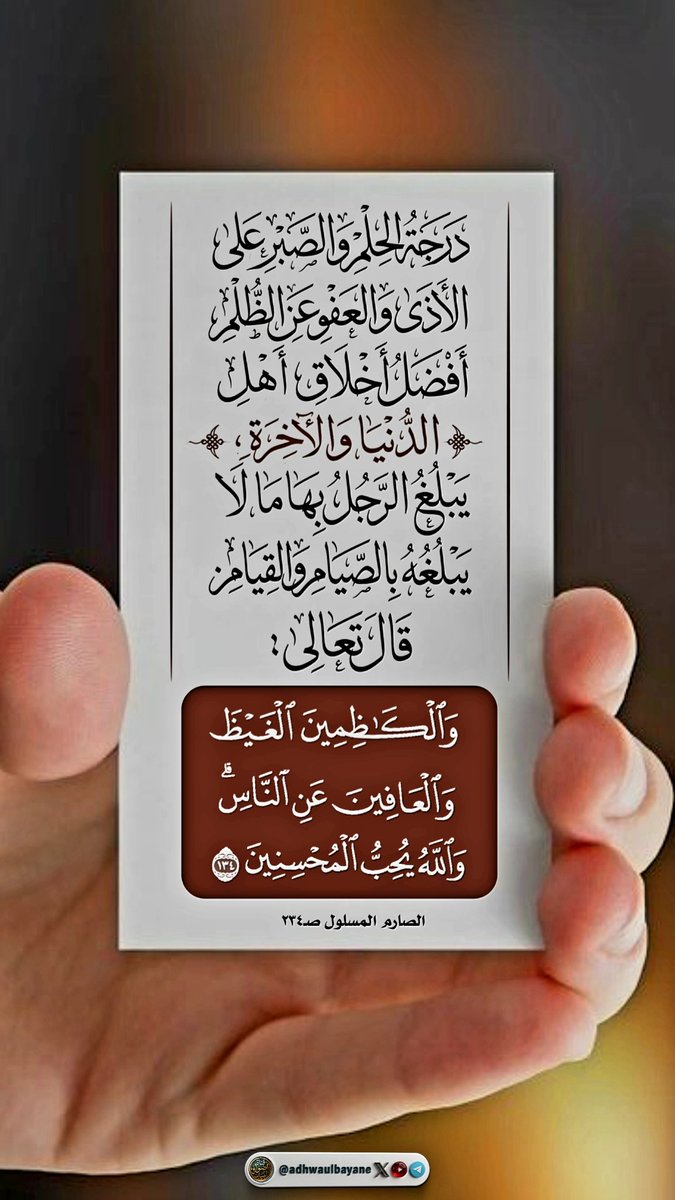 دَرَجَةُ الحِلْمِ وَالصَّبْرِ عَلَى
الأَذَى وَالعَفْوِ عَنِ الظُّلْمِ
أَفْضَلُ أَخْلَاقِ أَهْلِ
الدُّنْيَا وَالآخِرَةِ ،
يَبْلُغُ الرَّجُلُ بِهَا مَا لَا
يَبْلُغُهُ بِالصِّيَامِ وَالقِيَامِ.
قَالَ تَعَالَى :
وَٱلْكَـٰظِمِينَ ٱلْغَيْظَ
وَٱلْعَافِينَ عَنِ ٱلنَّاسِ ۗ
وَٱللَّهُ يُحِبُّ ٱلْمُحْسِنِينَ ١٣٤
الصارم المسلول صـ٢٣٤
@adhwaulbayane